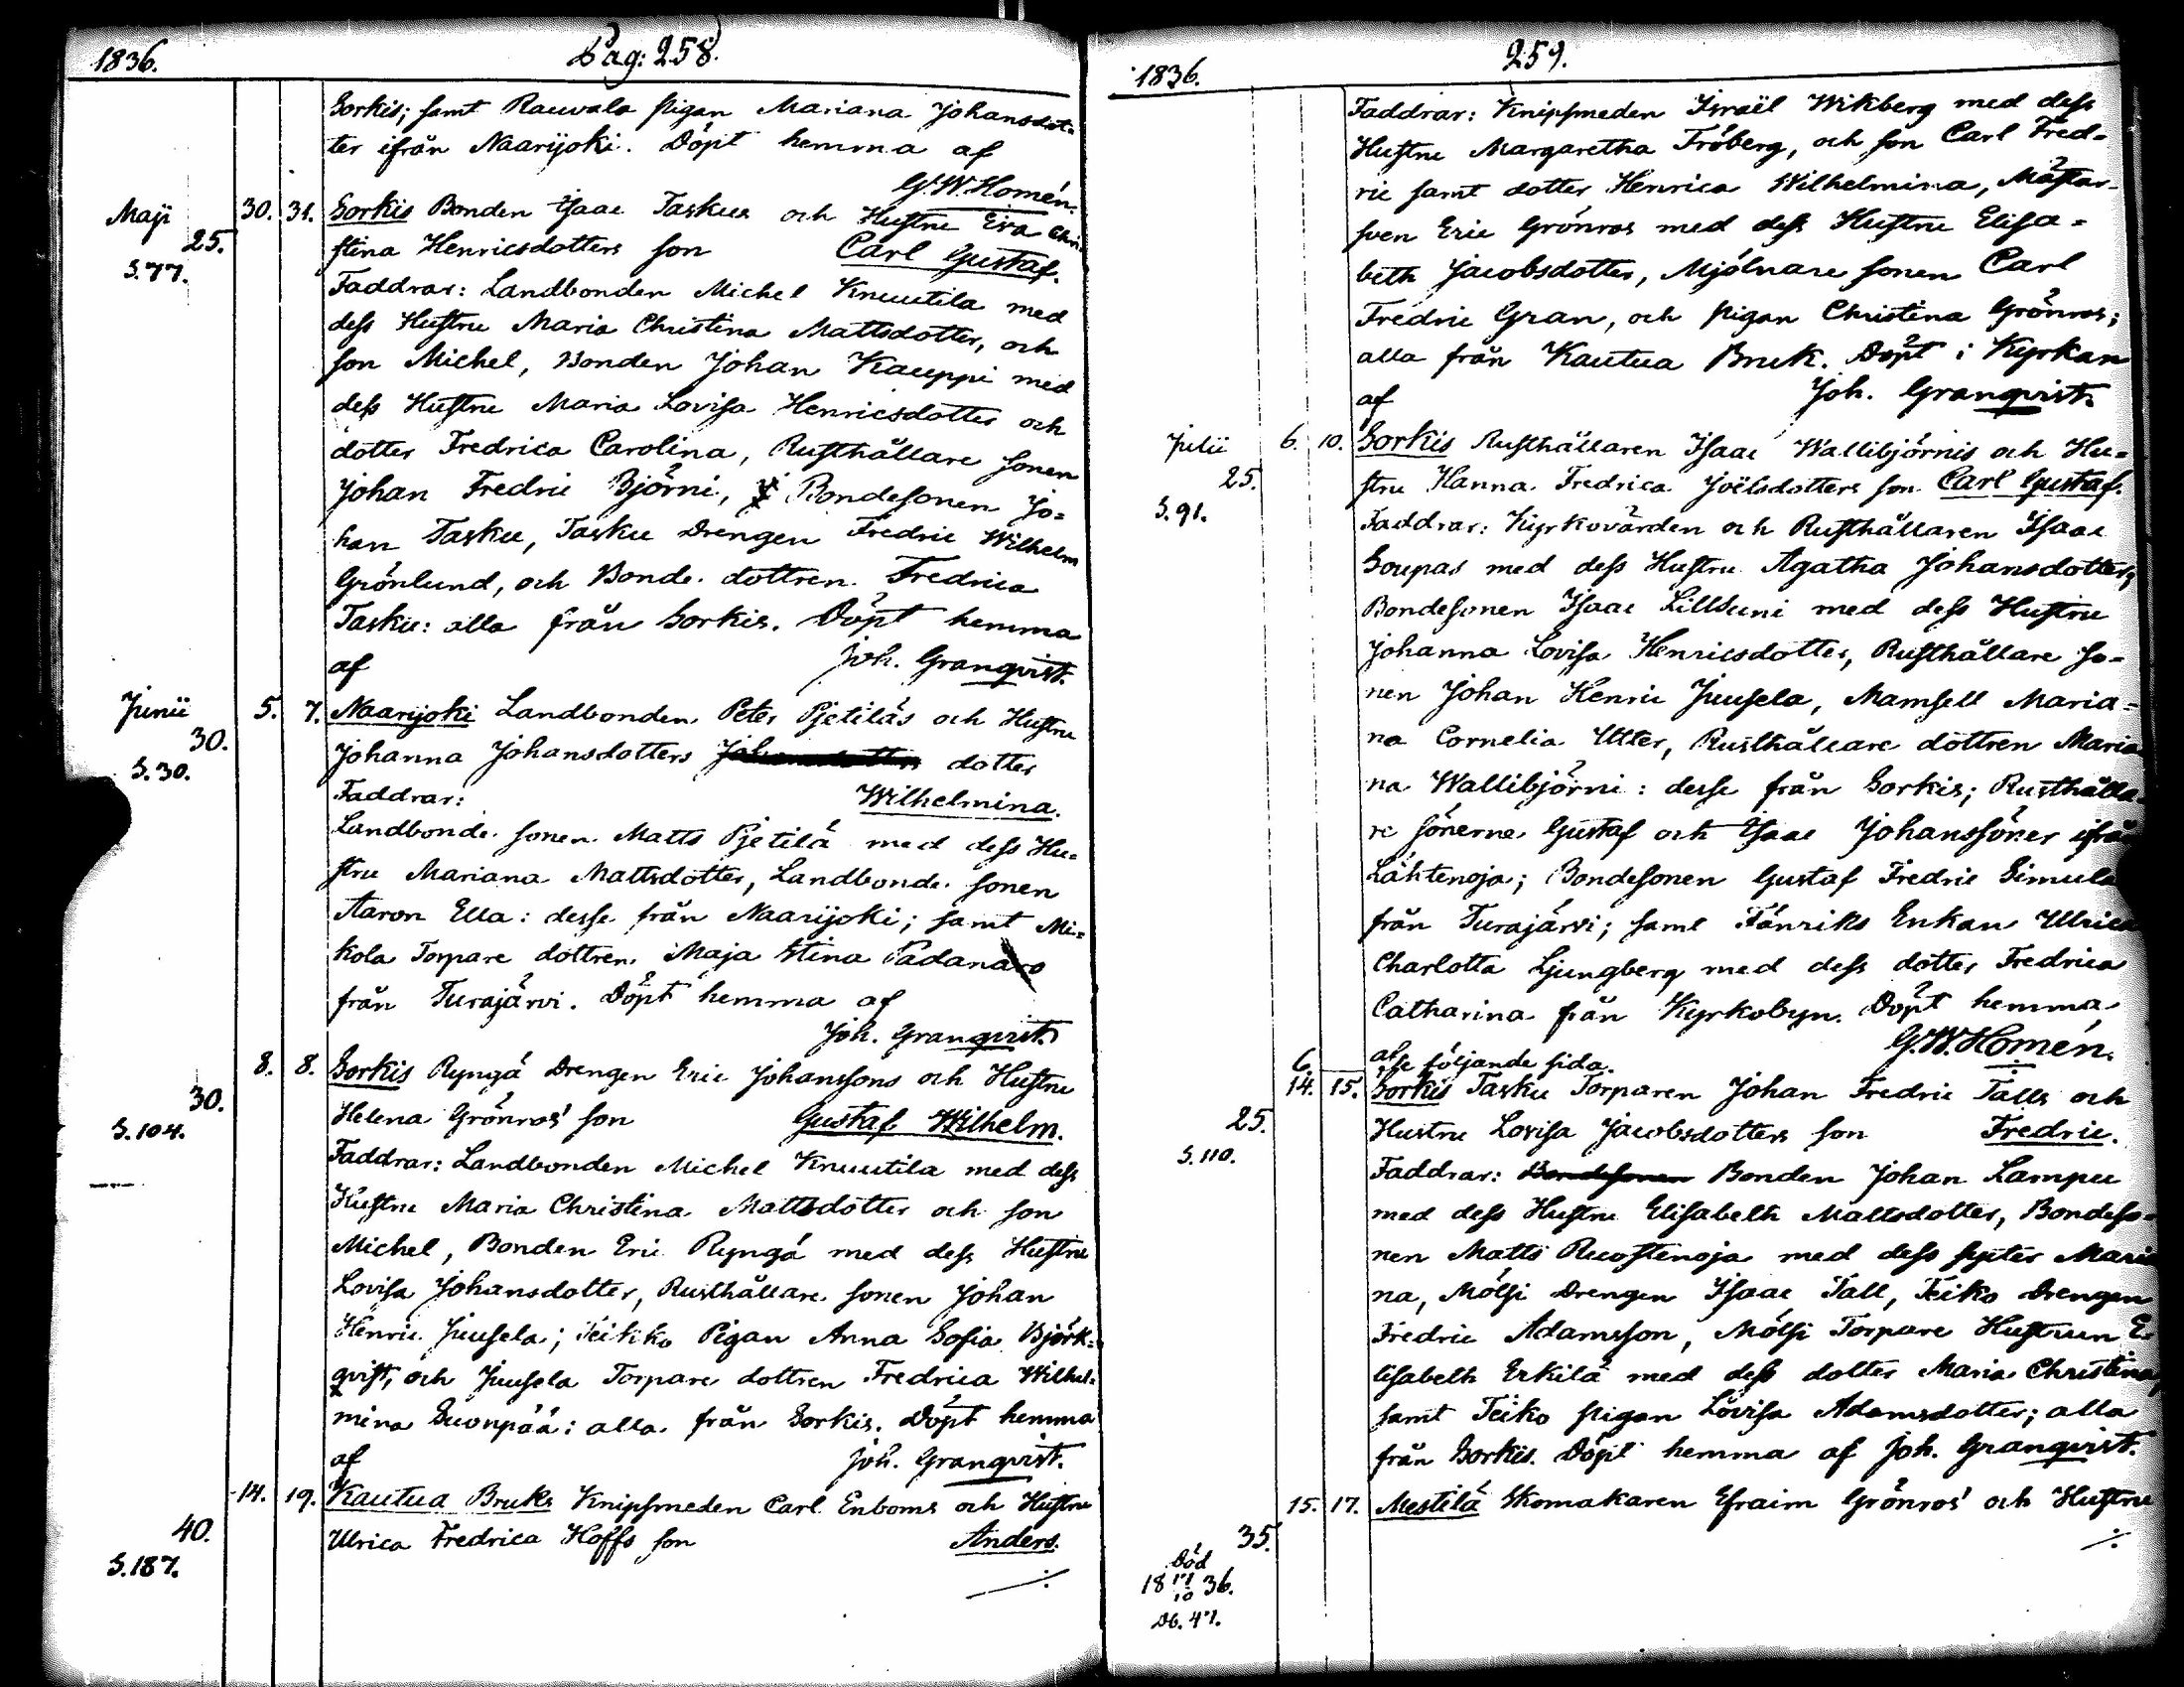 1836. Pag: 258.
Sorkis; samt Rauvala pigan Mariana Johansdot-
ter ifrån Naarijoki. Döpt hemma af
G.W. Homén.
Maji 30. 31. Sorkis Bonden Isaac Taskus och Hustru Eva Chri-
25. stina Henricsdotters son Carl Gustaf.
S. 77. Faddrar: Landbonden Michel Knuutila med
dess Hustru Maria Christina Mattsdotter, och
son Michel, Bonden Johan Kauppi med
dess Hustru Maria Lovisa Henricsdotter och
dotter Fredrica Carolina, Rusthållare sonen
Johan Fredric Björni, Bondesonen Jo=
han Tasku, Tasku Drengen Fredric Wilhelm
Grönlund, och Bonde dottren Fredrica
Tasku: alla från Sorkis. Döpt hemma
af Joh. Granqvist.
Junii 5. 7. Naarijoki Landbonden Peter Pjetiläs och Hustru
30. Johanna Johansdotters dotter
S. 30. Faddrar: Wilhelmina.
Landbonde sonen Matts Pjetilä med dess Hu=
stru Mariana Mattsdotter, Landbonde sonen
Aaron Ella: desse från Naarijoki; samt Mi=
kola Torpare dottren Maja Stina Padanaro
från Turajärvi. Döpt hemma af
Joh. Granqvist.
8. 8. Sorkis Ryngä Drengen Eric Johanssons och Hustru
30. Helena Grönros' son Gustaf Wilhelm.
S. 104. Faddrar: Landbonden Michel Knuutila med dess
Hustru Maria Christina Mattsdotter och son
Michel, Bonden Eric Ryngä med dess Hustru
Lovisa Johansdotter, Rusthållare sonen Johan
Henric Juusela; Teikko Pigan Anna Sofia Björk=
qvist, och Juusela Torpare dottren Fredrica Wilhel=
mina Suonpää: alla från Sorkis. Döpt hemma
af Joh. Granqvist.
14. 19. Kautua Bruks Knipsmeden Carl Enboms och Hustru
40. Ulrica Fredrica Hoffs son Anders.
S. 187. ⁒
1836. 259.
Faddrar: Knipsmeden Israël Wikberg med dess
Hustru Margaretha Fröberg, och son Carl Fred=
ric samt dotter Henrica Wilhelmina, Mästar-
sven Eric Grönros med dess Hustru Elisa=
beth Jacobsdotter, Mjölnare sonen Carl
Fredric Gran, och pigan Christina Grönros;
alla från Kautua Bruk. Döpt i Kyrkan
af Joh. Granqvist.
Julii 6. 10. Sorkis Rusthållaren Isaac Wallibjörnis och Hu=
25. stru Hanna Fredrica Joëlsdotters son Carl Gustaf.
S. 91. Faddrar: Kyrkovärden och Rusthållaren Isaac
Soupas med dess Hustru Agatha Johansdotter,
Bondesonen Isaac Lillsuni med dess Hustru
Johanna Lovisa Henricsdotter, Rusthållare so=
nen Johan Henric Juusela, Mamsell Maria=
na Cornelia Utter, Rusthållare dottren Maria
na Wallibjörni: desse från Sorkis; Rusthålla-
re sönerne Gustaf och Isaac Johanssöner ifrån
Lähtenoja; Bondesonen Gustaf Fredric Simula
från Turajärvi; samt Fänriks Enkan Ulrica
Charlotta Ljungberg med dess dotter Fredrica
Catharina från Kyrkobyn. Döpt hemma
af G.W. Homén.
6. se följande sida.
14. 15. Sorkis Tasku Torparen Johan Fredric Talls och
25. Hustru Lovisa Jacobsdotters son Fredric.
S. 110. Faddrar: Bondesonen Bonden Johan Lampu
med dess Hustru Elisabeth Mattsdotter, Bondeso=
nen Matts Ruostenoja med dess syster Maria
na, Mölsi Drengen Isaac Tall, Teiko Drengen
Fredric Adamsson, Mölsi Torpare Hustrun E-
lisabeth Erkilä med dess dotter Maria Christina,
samt Teiko pigan Lovisa Adamsdotter; alla
från Sorkis. Döpt hemma af Joh. Granqvist.
15. 17. Mestilä Skomakaren Efraim Grönros' och Hustru
35. ⁒
Död
18 17/10 36.
Db. 47.